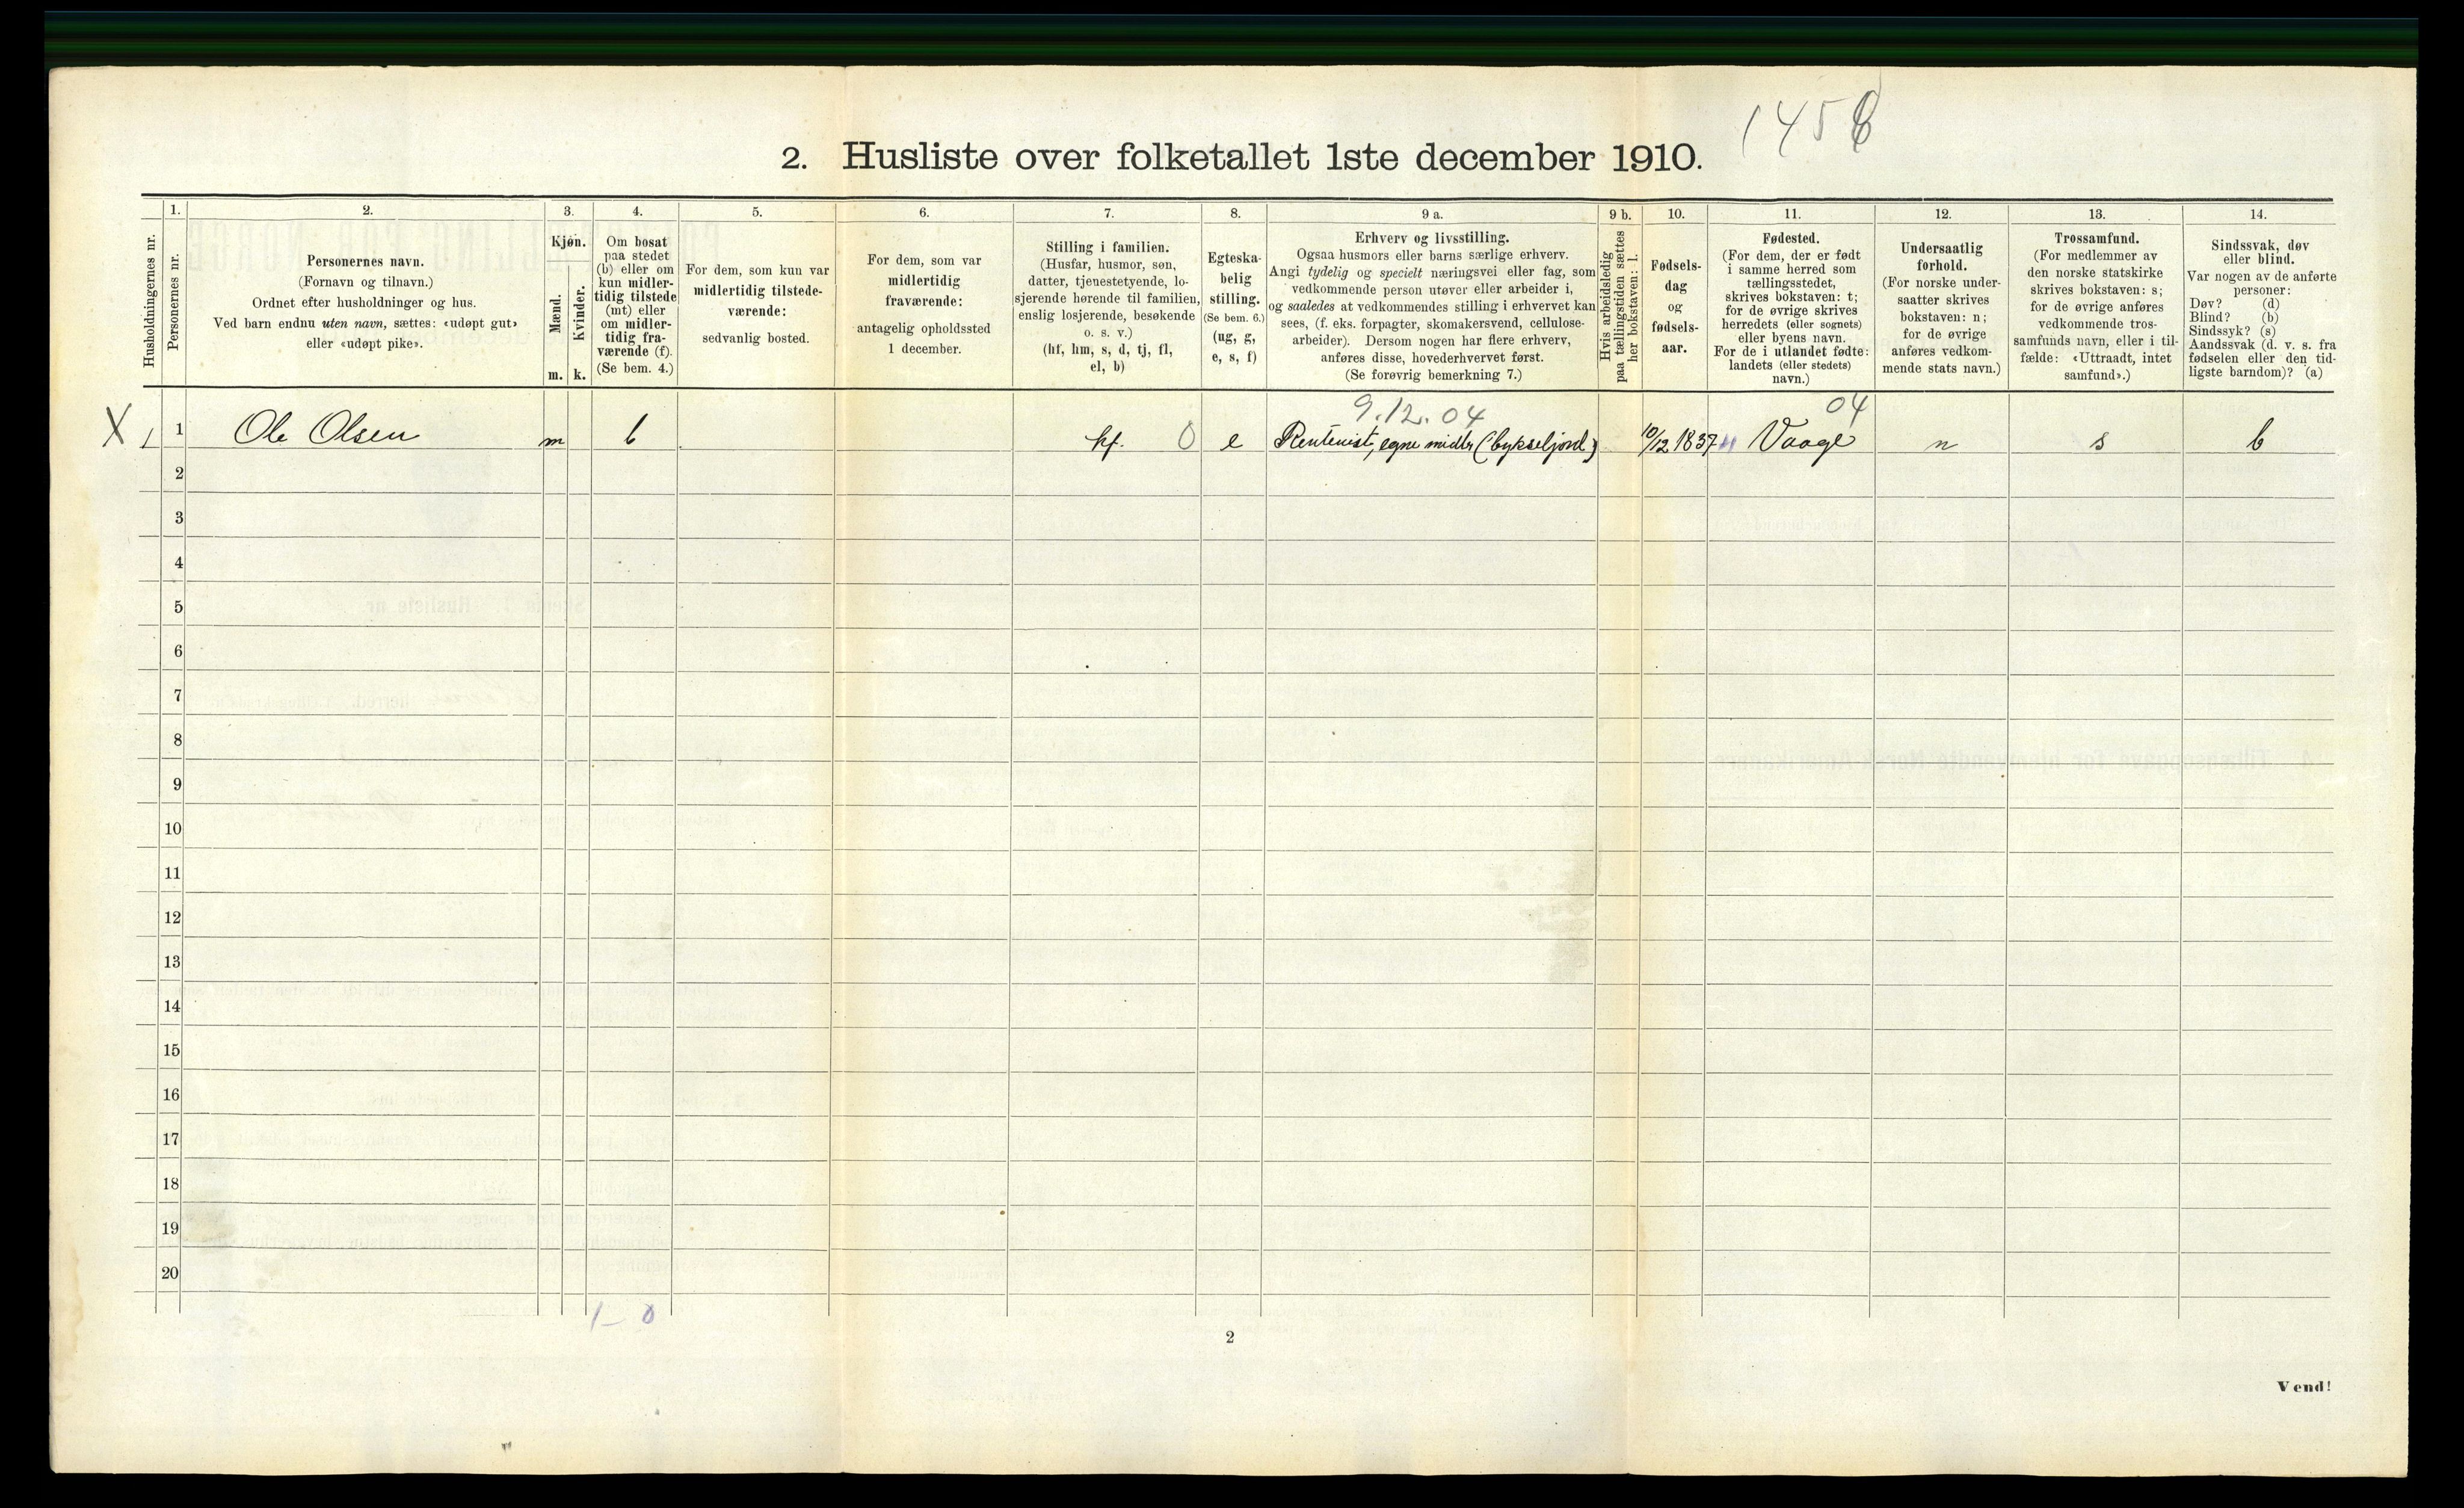 1458
2. Husliste over folketallet 1ste december 1910.
Husholdningernes nr.
1.
Personernes nr.
2.
Personernes navn.
(Fornavn og tilnavn.)
Ordnet efter husholdninger og hus.
Ved barn endnu uten navn, sættes: «udøpt gut»
eller «udøpt pike».
3.
Kjøn.
Mænd.
Kvinder.
m. k.
4.
Om bosat
paa stedet
(b) eller om
kun midler-
tidig tilstede
(mt) eller
om midler-
tidig fra-
værende (f).
(Se bem. 4.)
5.
For dem, som kun var
midlertidig tilstede-
værende:
sedvanlig bosted.
6.
For dem, som var
midlertidig
fraværende:
antagelig opholdssted
1 december.
7.
Stilling i familien.
(Husfar, husmor, søn,
datter, tjenestetyende, lo-
sjerende hørende til familien,
enslig losjerende, besøkende
o. s. v.)
(hf, hm, s, d, tj, fl,
el, b)
8.
Egteska-
belig
stilling.
(Se bem. 6.)
(ug, g,
e, s, f)
9 a.
Erhverv og livsstilling.
Ogsaa husmors eller barns særlige erhverv.
Angi tydelig og specielt næringsvei eller fag, som
vedkommende person utøver eller arbeider i,
og saaledes at vedkommendes stilling i erhvervet kan
sees, (f. eks. forpagter, skomakersvend, cellulose-
arbeider). Dersom nogen har flere erhverv,
anføres disse, hovederhvervet først.
(Se forøvrig bemerkning 7.)
9 b.
Hvis arbeidsledig
paa tællingstiden sættes
her bokstaven: l.
10.
Fødsels-
dag
og
fødsels-
aar.
11.
Fødested.
(For dem, der er født
i samme herred som
tællingsstedet,
skrives bokstaven: t;
for de øvrige skrives
herredets (eller sognets)
eller byens navn.
For de i utlandet fødte:
landets (eller stedets)
navn.)
12.
Undersaatlig
forhold.
(For norske under-
saatter skrives
bokstaven: n;
for de øvrige
anføres vedkom-
mende stats navn.)
13.
Trossamfund.
(For medlemmer av
den norske statskirke
skrives bokstaven: s;
for de øvrige anføres
vedkommende tros-
samfunds navn, eller i til-
fælde: «Uttraadt, intet
samfund».)
14.
Sindssvak, døv
eller blind.
Var nogen av de anførte
personer:
Døv? (d)
Blind? (b)
Sindssyk? (s)
Aandssvak (d. v. s. fra
fødselen eller den tid-
ligste barndom)? (a)
9.12.04 04
X 1 1 Ole Olsen m b hf. 0 e Rentenist, egne midler (bykseljord) 10/12 1837 Vaage n s b
2
3
4
5
6
7
8
9
10
11
12
13
14
15
16
17
18
19
20
1 – 0
2
Vend!